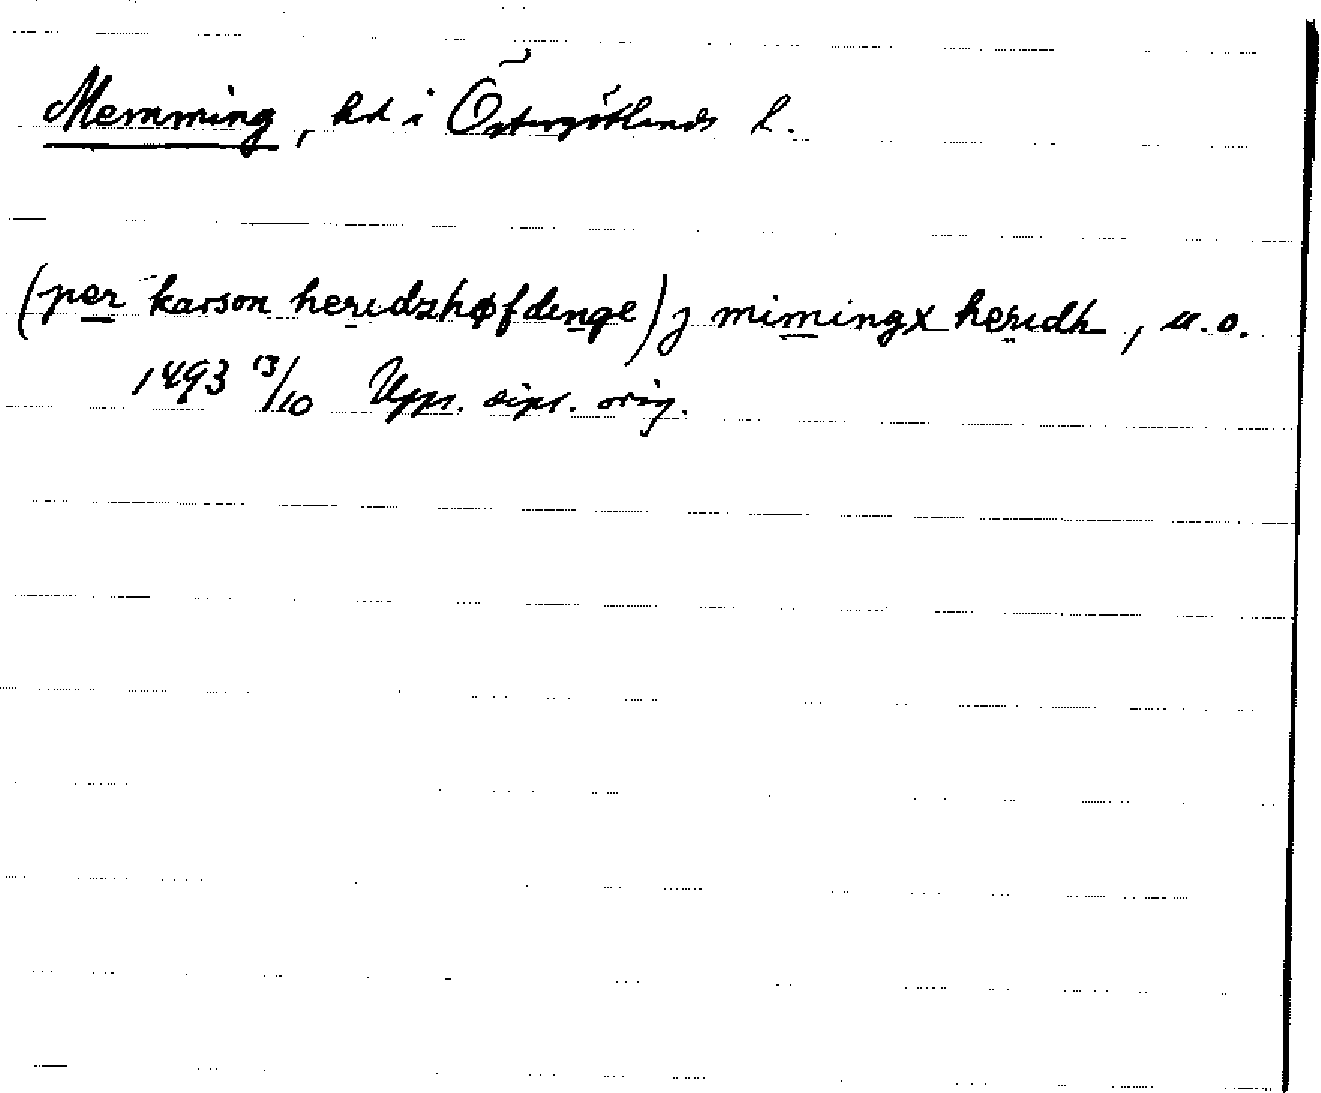 Memming, hd i Östergötlands l.
(per karson heridzhøfdenge) j mimingx heridh, u.o.
1493 13/10 Upps. dipl. orig.